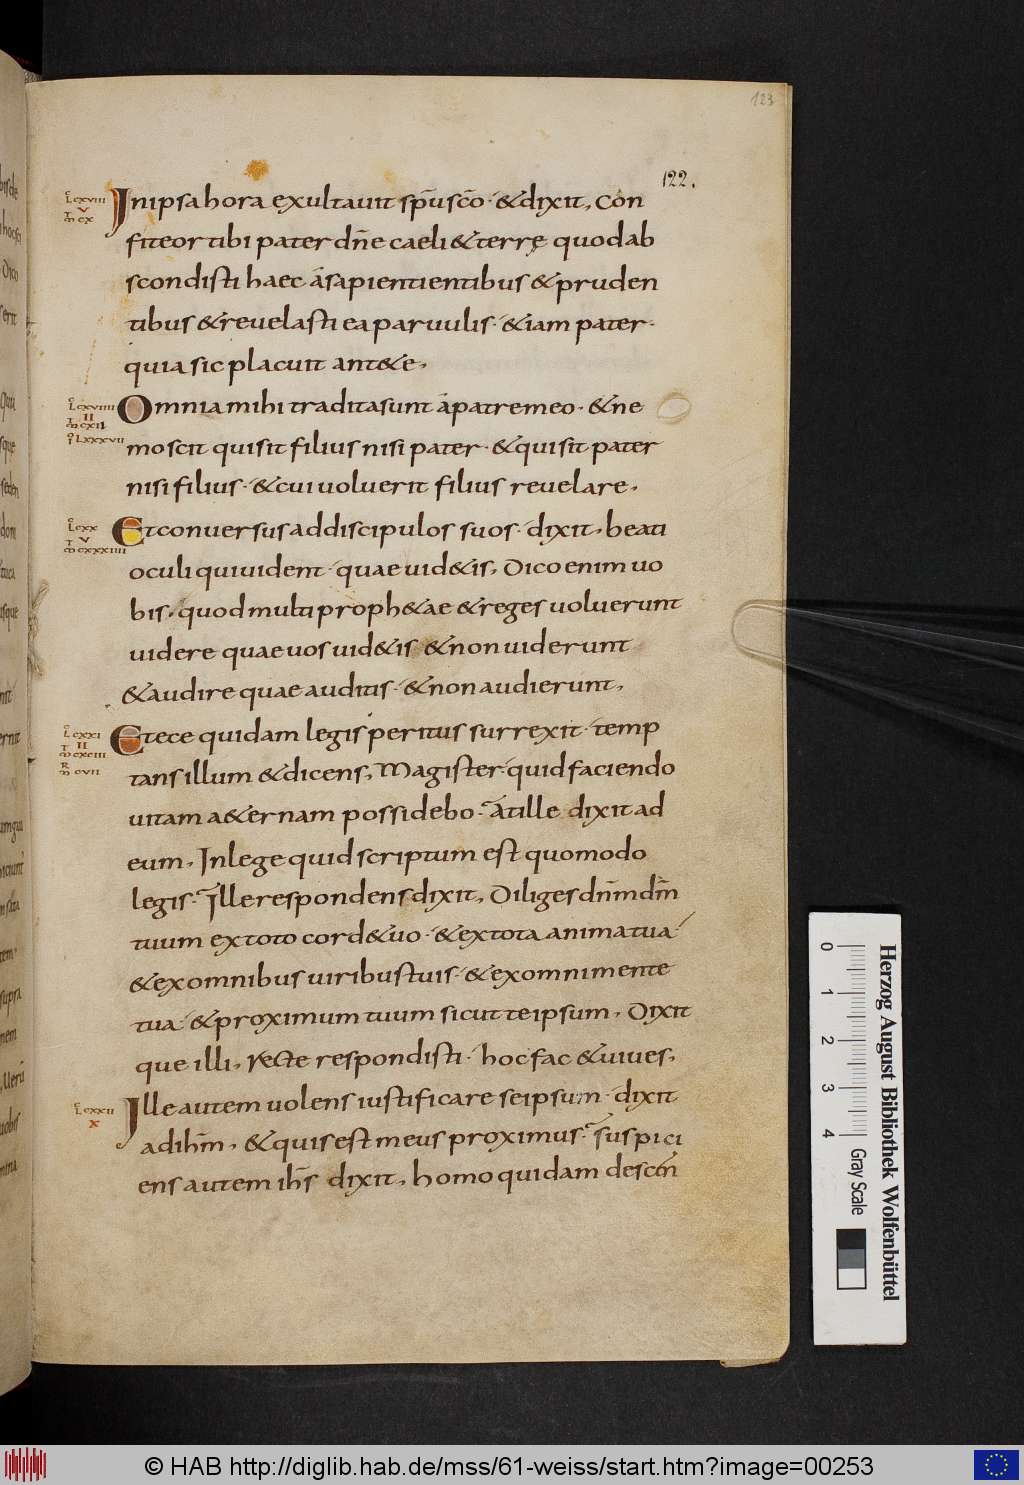 123
122.
L cxviii
v
m cx
In ipsa hora exultauit sp̄u sc̄o · & dixit, con
fiteor tibi pater dn̄e caeli & terrę quod ab
scondisti haec āsapientientibus & pruden
tibus & reuelasti ea paruulis · & iam pater ·
quia sic placuit ant& e,
L cxviiii
II
m cxii
i Lxxxvii
Omnia mihi tradita sunt āpatre meo · & ne
mo scit quis it filius nisi pater · & quis it pater
nisi filius · & cui uoluerit filius reuelare,
L cxx
v
m cxxxiiii
Et conuersus ad discipulos suos · dixit, beati
oculi qui uident · quae uid&is, Dico enim uo
bis, quod multi proph&ae & reges uoluerunt
uidere quae uos uid&is & non uiderunt
& audire quae auditis · & non audierunt,
L cxxi
II
m cxciii
R
m cvii
Et ece quidam legis peritus surrexit · temp
tans illum & dicens, Magister · quid faciendo
uitam a&ernam possidebo · āt ille dixit ad
eum, In lege quid scriptum est quomodo
legis · Ille respondens dixit, Diliges dn̄m dm̄
tuum ex toto cord& uo · & ex tota anima tua
& ex omnibus uiribus tuis · & ex omni mente
tua · & proximum tuum sicut te ipsum, Dixit
que illi, recte respondisti · hoc fac & uiues,
L cxxii
x
Ille autem uolens iustificare se ipsum · dixit
ad ihm̄, & quis est meus proximus · suspici
ens autem ihs̄ dixit, homo quidam descen
0 1 2 3 4
Gray Scale
Herzog August Bibliothek Wolfenbüttel
© HAB http://diglib.hab.de/mss/61-weiss/start.htm?image=00253